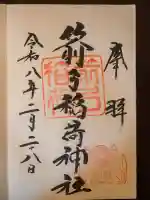 奉拝
箭弓稲荷神社
令和八年二月二十八日